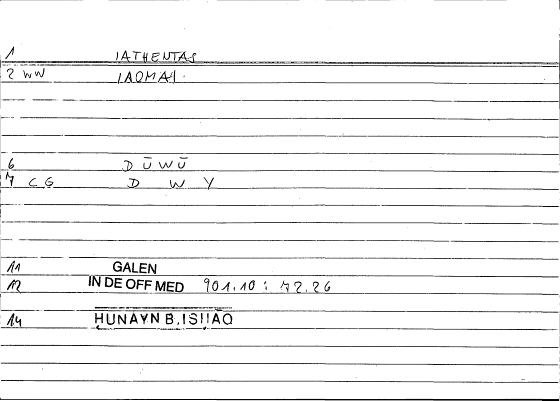 1 IATHENTAS
2 WW IAOMAI.
6 D Ū W Ū
7 CG D W Y
11 GALEN
12 IN DE OFF MED 901.10 : 72.26
14 ḤUNAYN B. ISḤĀQ